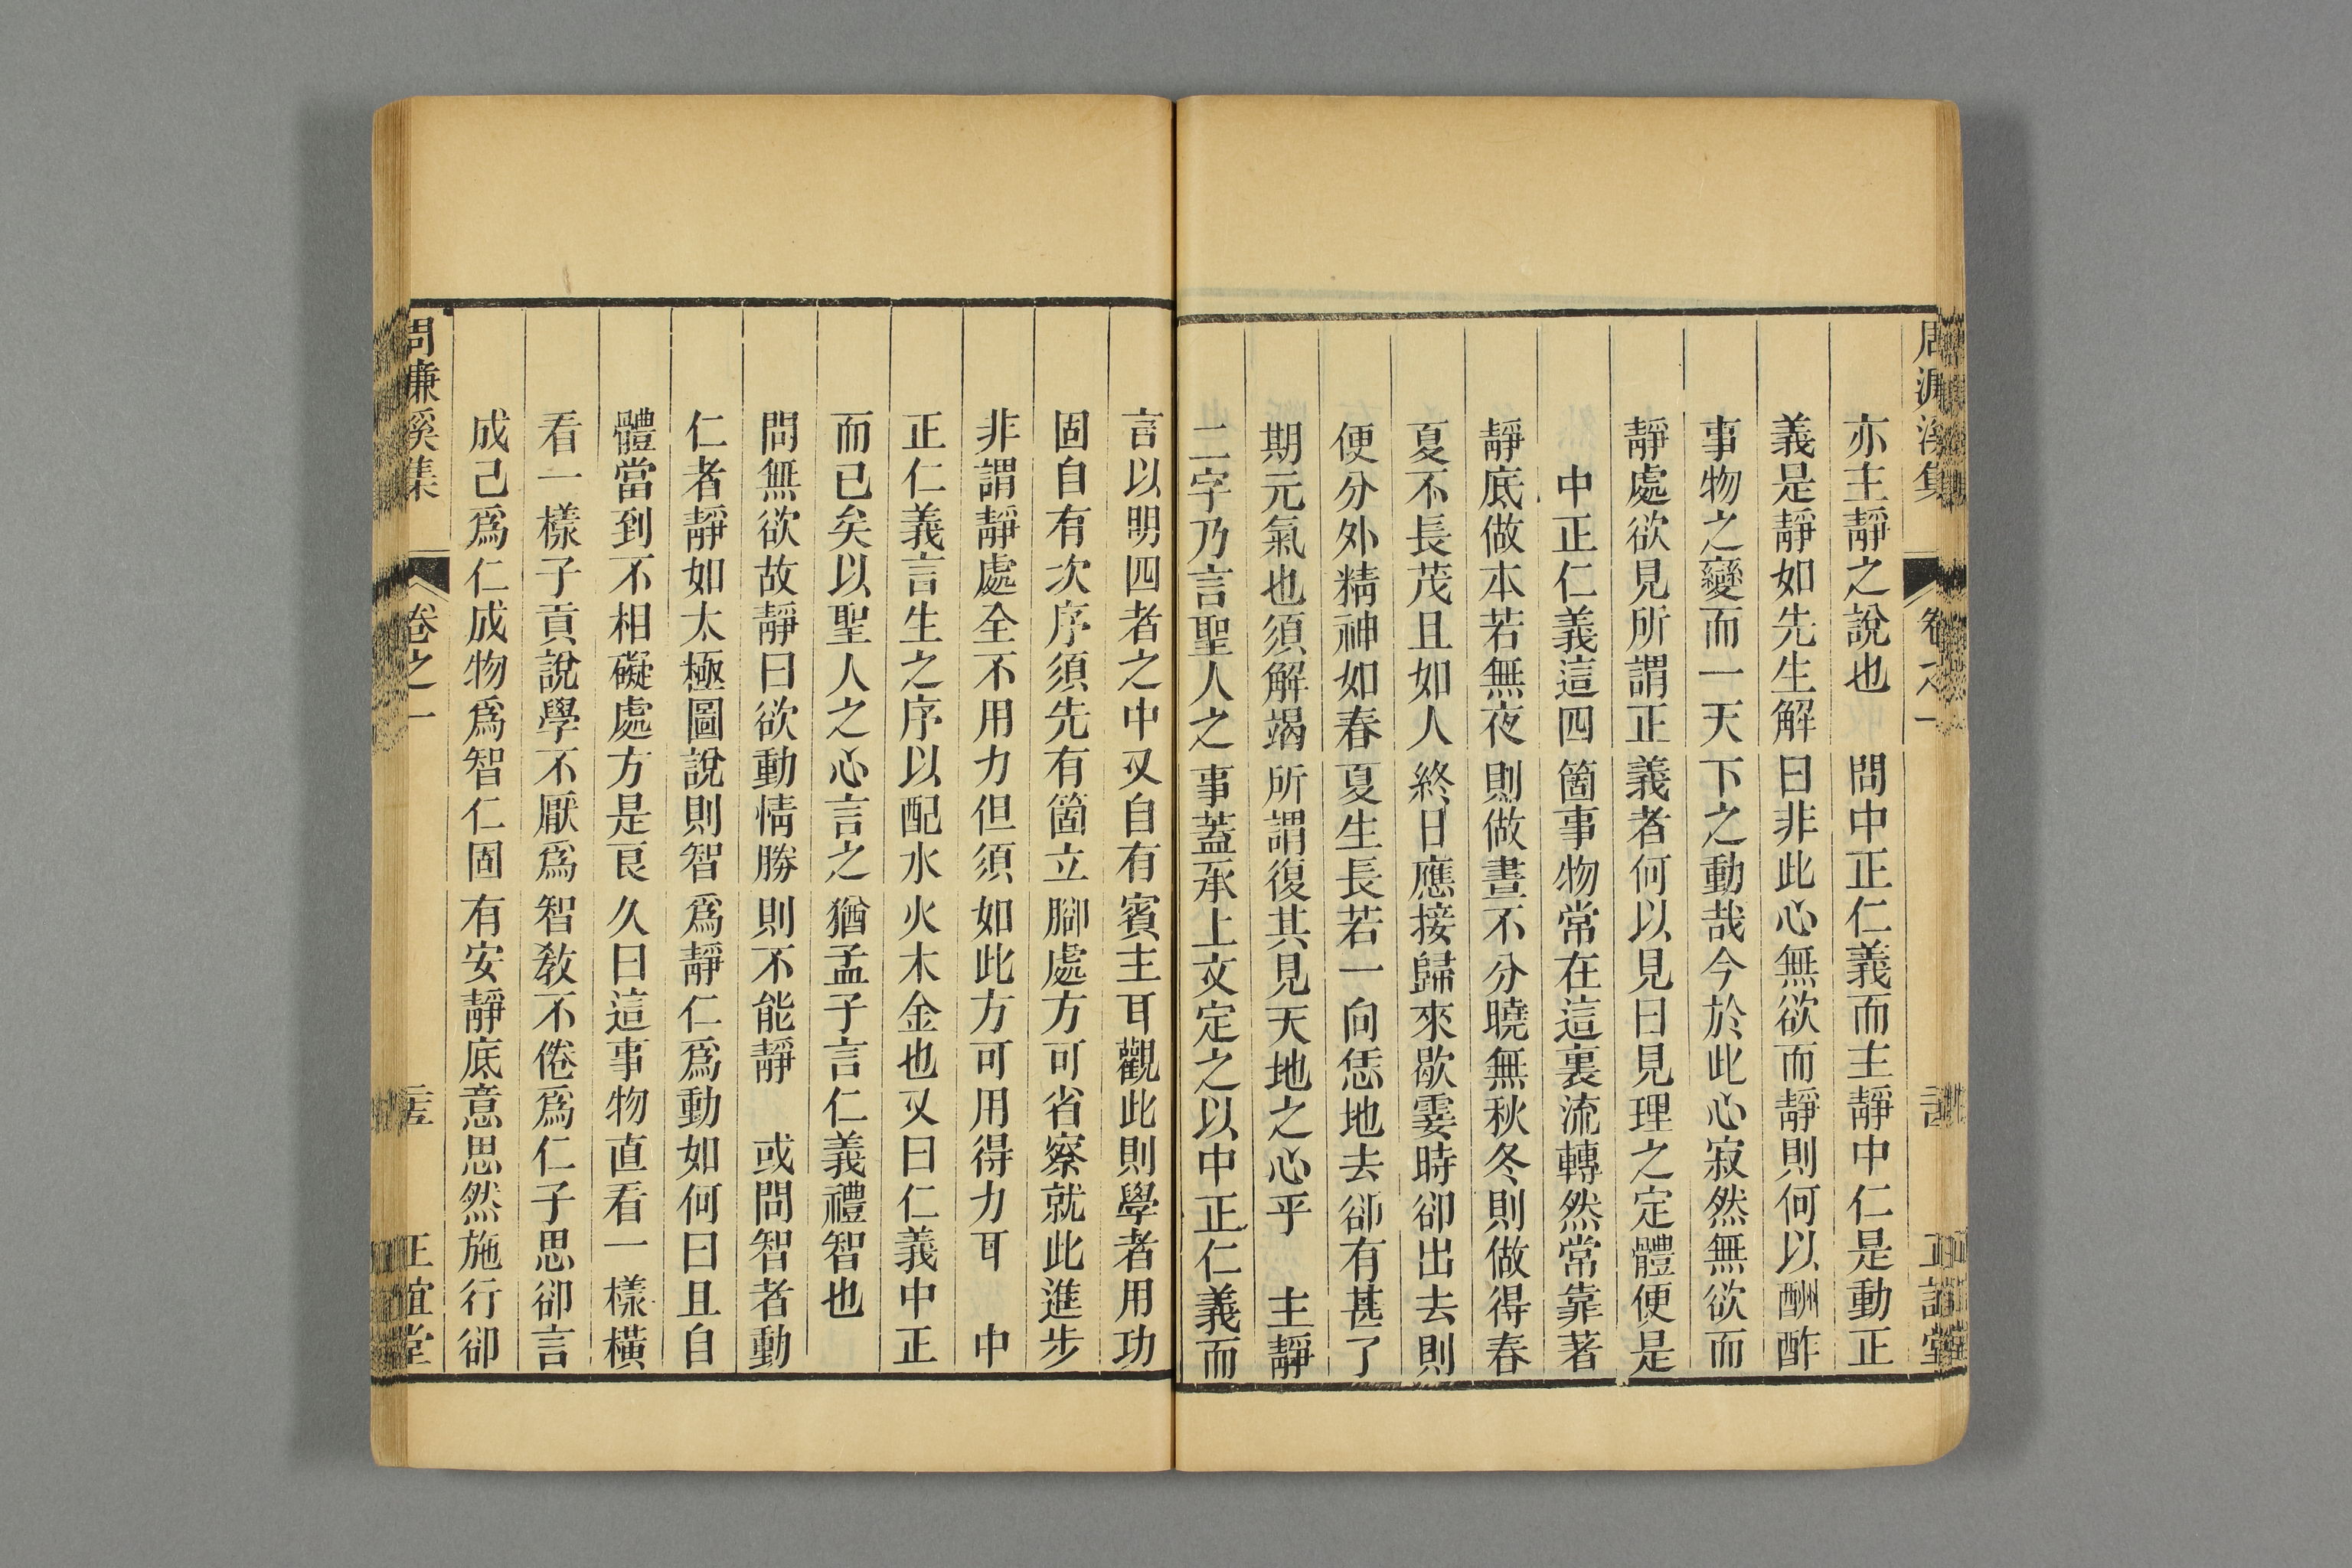 周濂溪集 卷之一 正誼堂
亦主靜之說也 問中正仁義而主靜中仁是動正
義是靜如先生解曰非此心無欲而靜則何以酬酢
事物之變而一天下之動哉今於此心寂然無欲而
靜處欲見所謂正義者何以見曰見理之定體便是
中正仁義這四箇事物常在這裏流轉然常靠著
靜底做本若無夜則做晝不分曉無秋冬則做得春
夏不長茂且如人終日應接歸來歇霎時卻出去則
便分外精神如春夏生長若一向恁地去卻有甚了
期元氣也須解竭所謂復其見天地之心乎 主靜
二字乃言聖人之事蓋承上文定之以中正仁義而
言以明四者之中又自有賓主耳觀此則學者用功
固自有次序須先有箇立腳處方可省察就此進步
非謂靜處全不用力但須如此方可用得力耳 中
正仁義言生之序以配水火木金也又曰仁義中正
而已矣以聖人之心言之猶孟子言仁義禮智也
問無欲故靜曰欲動情勝則不能靜 或問智者動
仁者靜如太極圖說則智爲靜仁爲動如何曰且自
體當到不相礙處方是良久曰這事物直看一樣橫
看一樣子貢說學不厭爲智教不倦爲仁子思卻言
成己爲仁成物爲智仁固有安靜底意思然施行卻
周濂溪集 卷之一 正誼堂